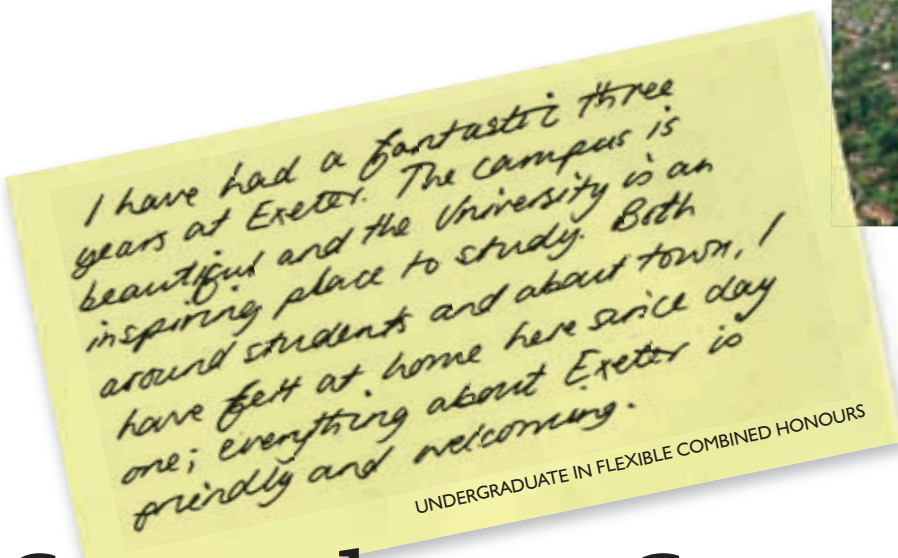 I have had a fantastic three
years at Exeter. The campus is
beautiful and the University is an
inspiring place to study. Both
around students and about town, I
have felt at home here since day
one; everything about Exeter is
friendly and welcoming.
UNDERGRADUATE IN FLEXIBLE COMBINED HONOURS